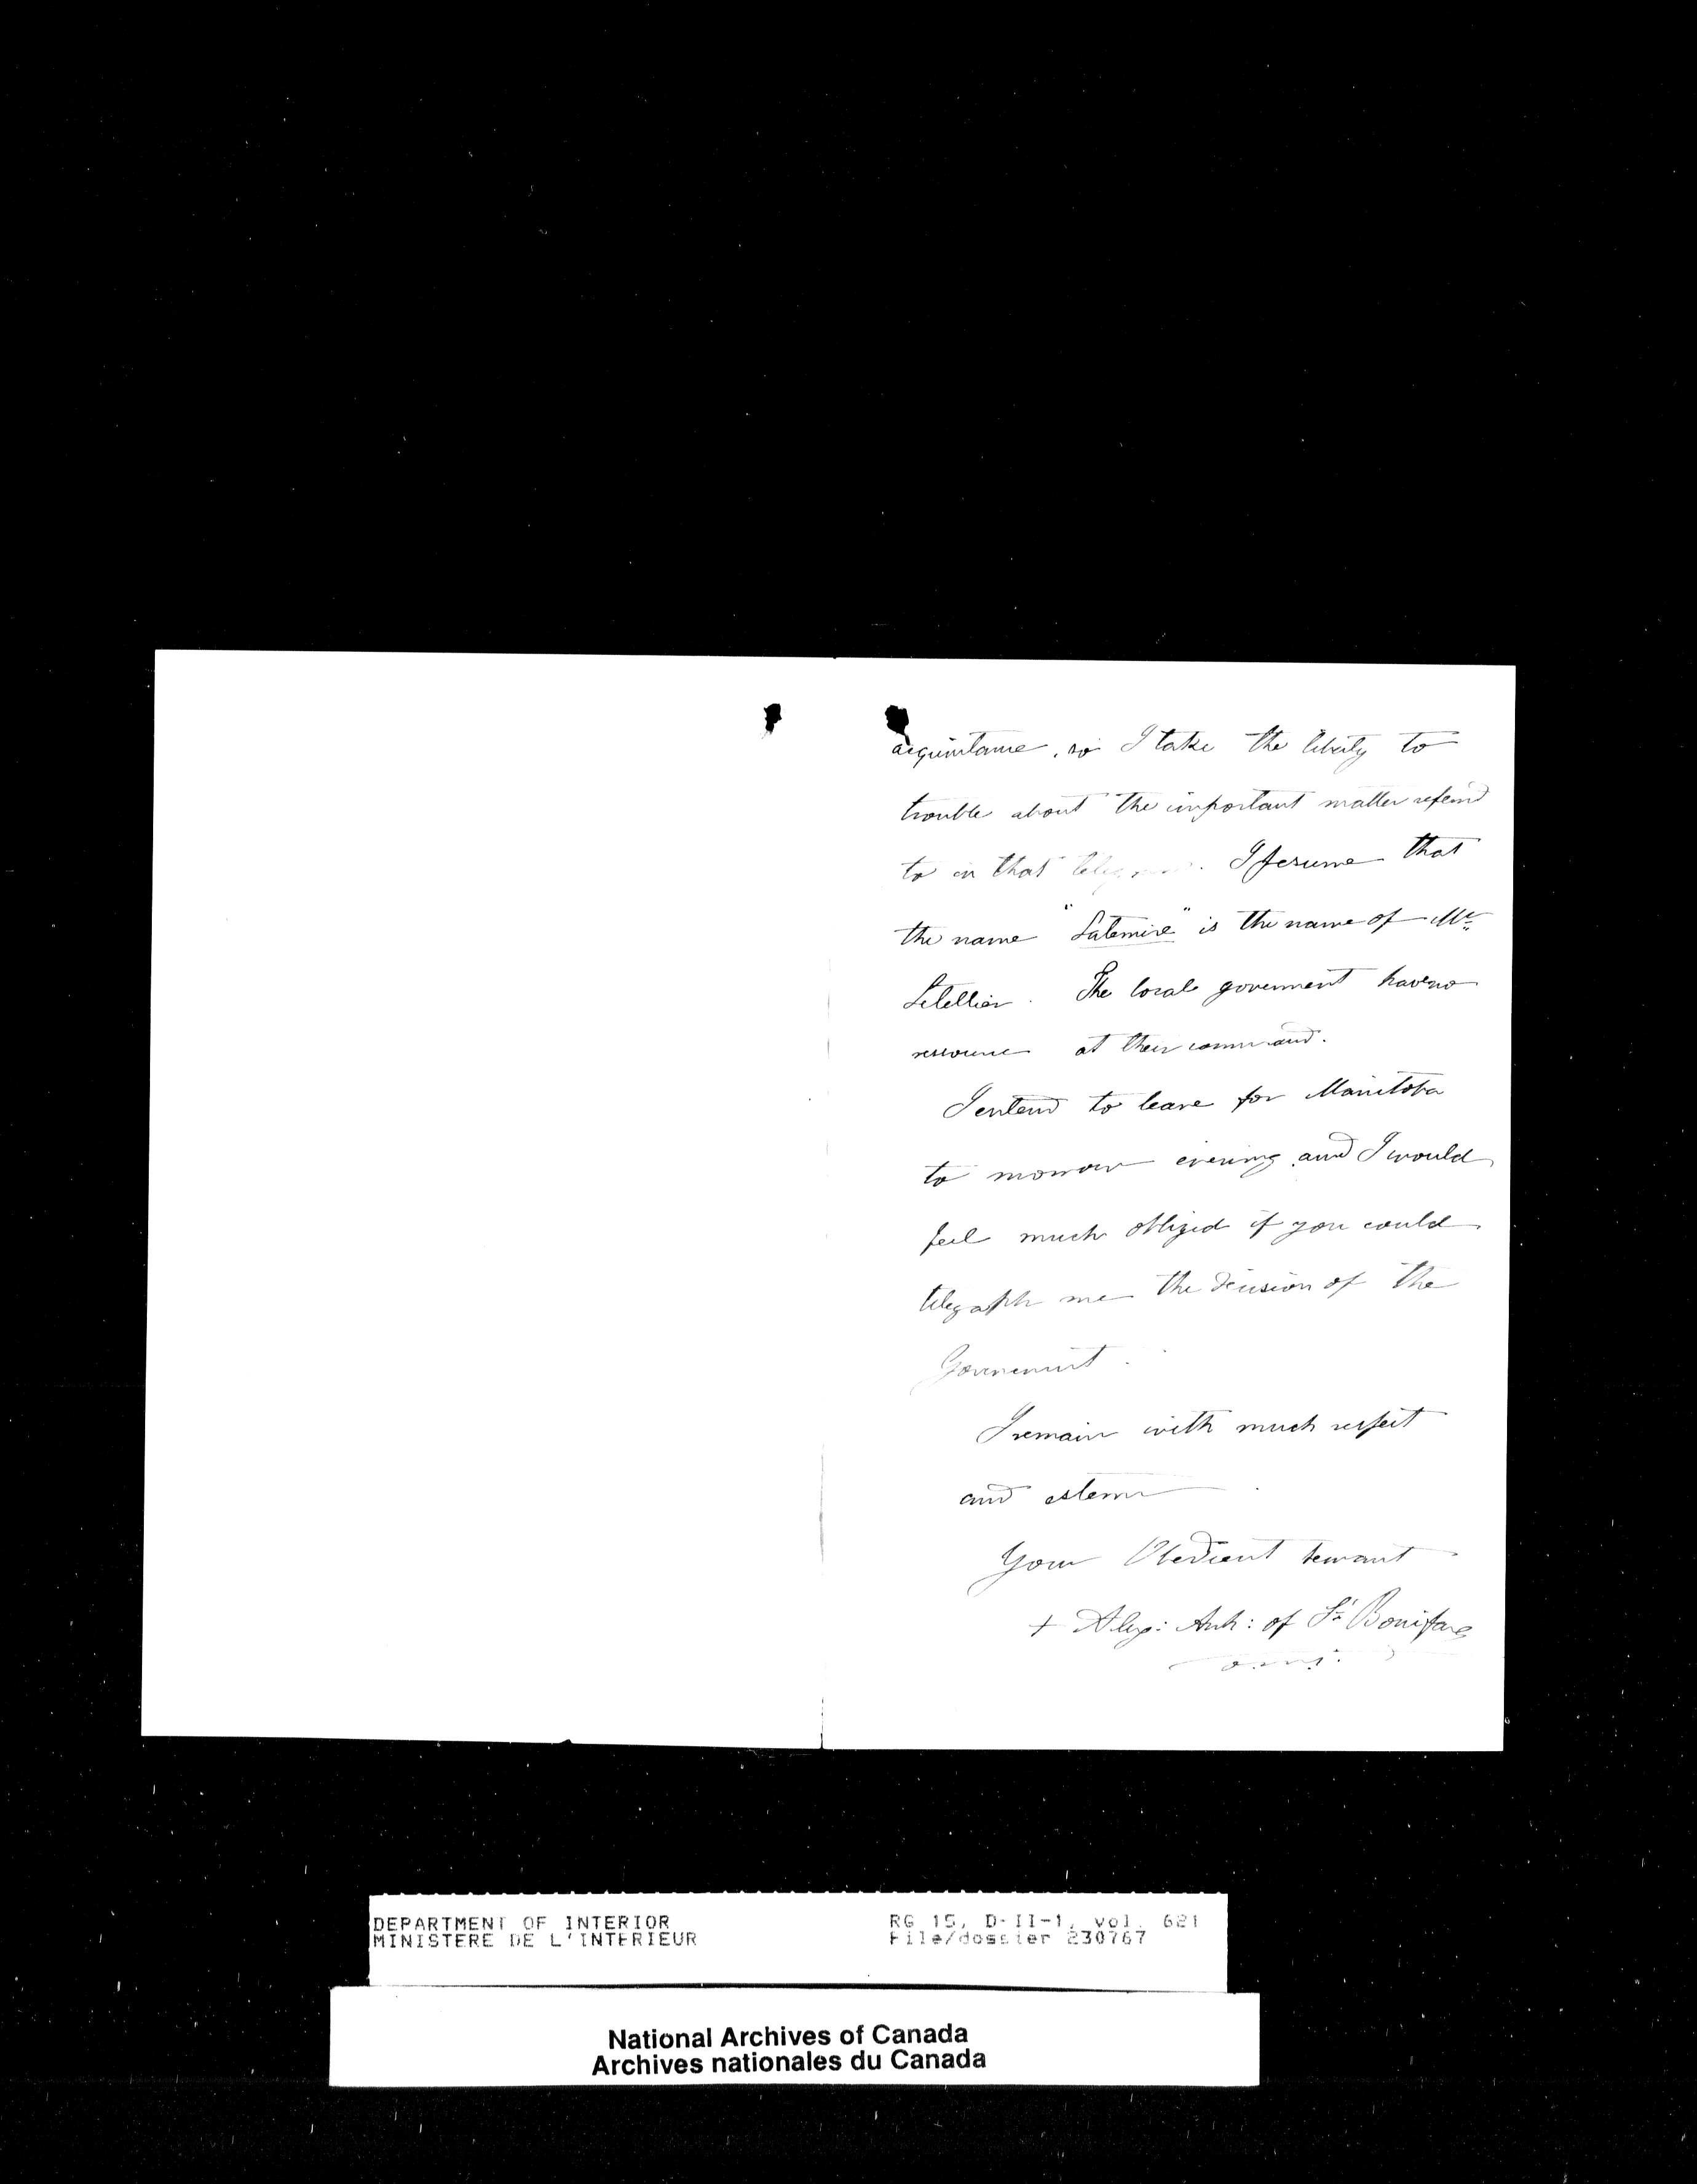 acquintance, so I take the liberty to
trouble about the important matter referrd
to in that telegram. I presume that
the name "Latemire" is the name of Mr
Letellier. The local goverment have no
ressource at their command.
I entend to leave for Manitoba
to morrow evening and I would
feel much obliged if you could
telegraph me the decision of the
Gouvernment.
I remain with much respect
and esteem
Your Obedient servant
+ Alex: Arch: of St Boniface
o.m.i.
DEPARTMENT OF INTERIOR
MINISTERE DE L'INTERIEUR
RG 15, D-II-1, vol. 621
File/dossier 230767
National Archives of Canada
Archives nationales du Canada